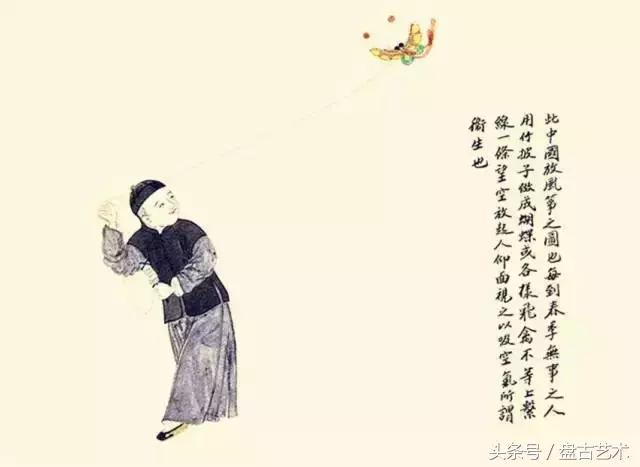 此中國放風箏之圖也每到春季無事之人
用竹披子做成蝴蝶或各樣飛禽不等上繫
線一條望空放起人仰面視之以吸空氣所謂
衛生也
头条号／盘古艺术